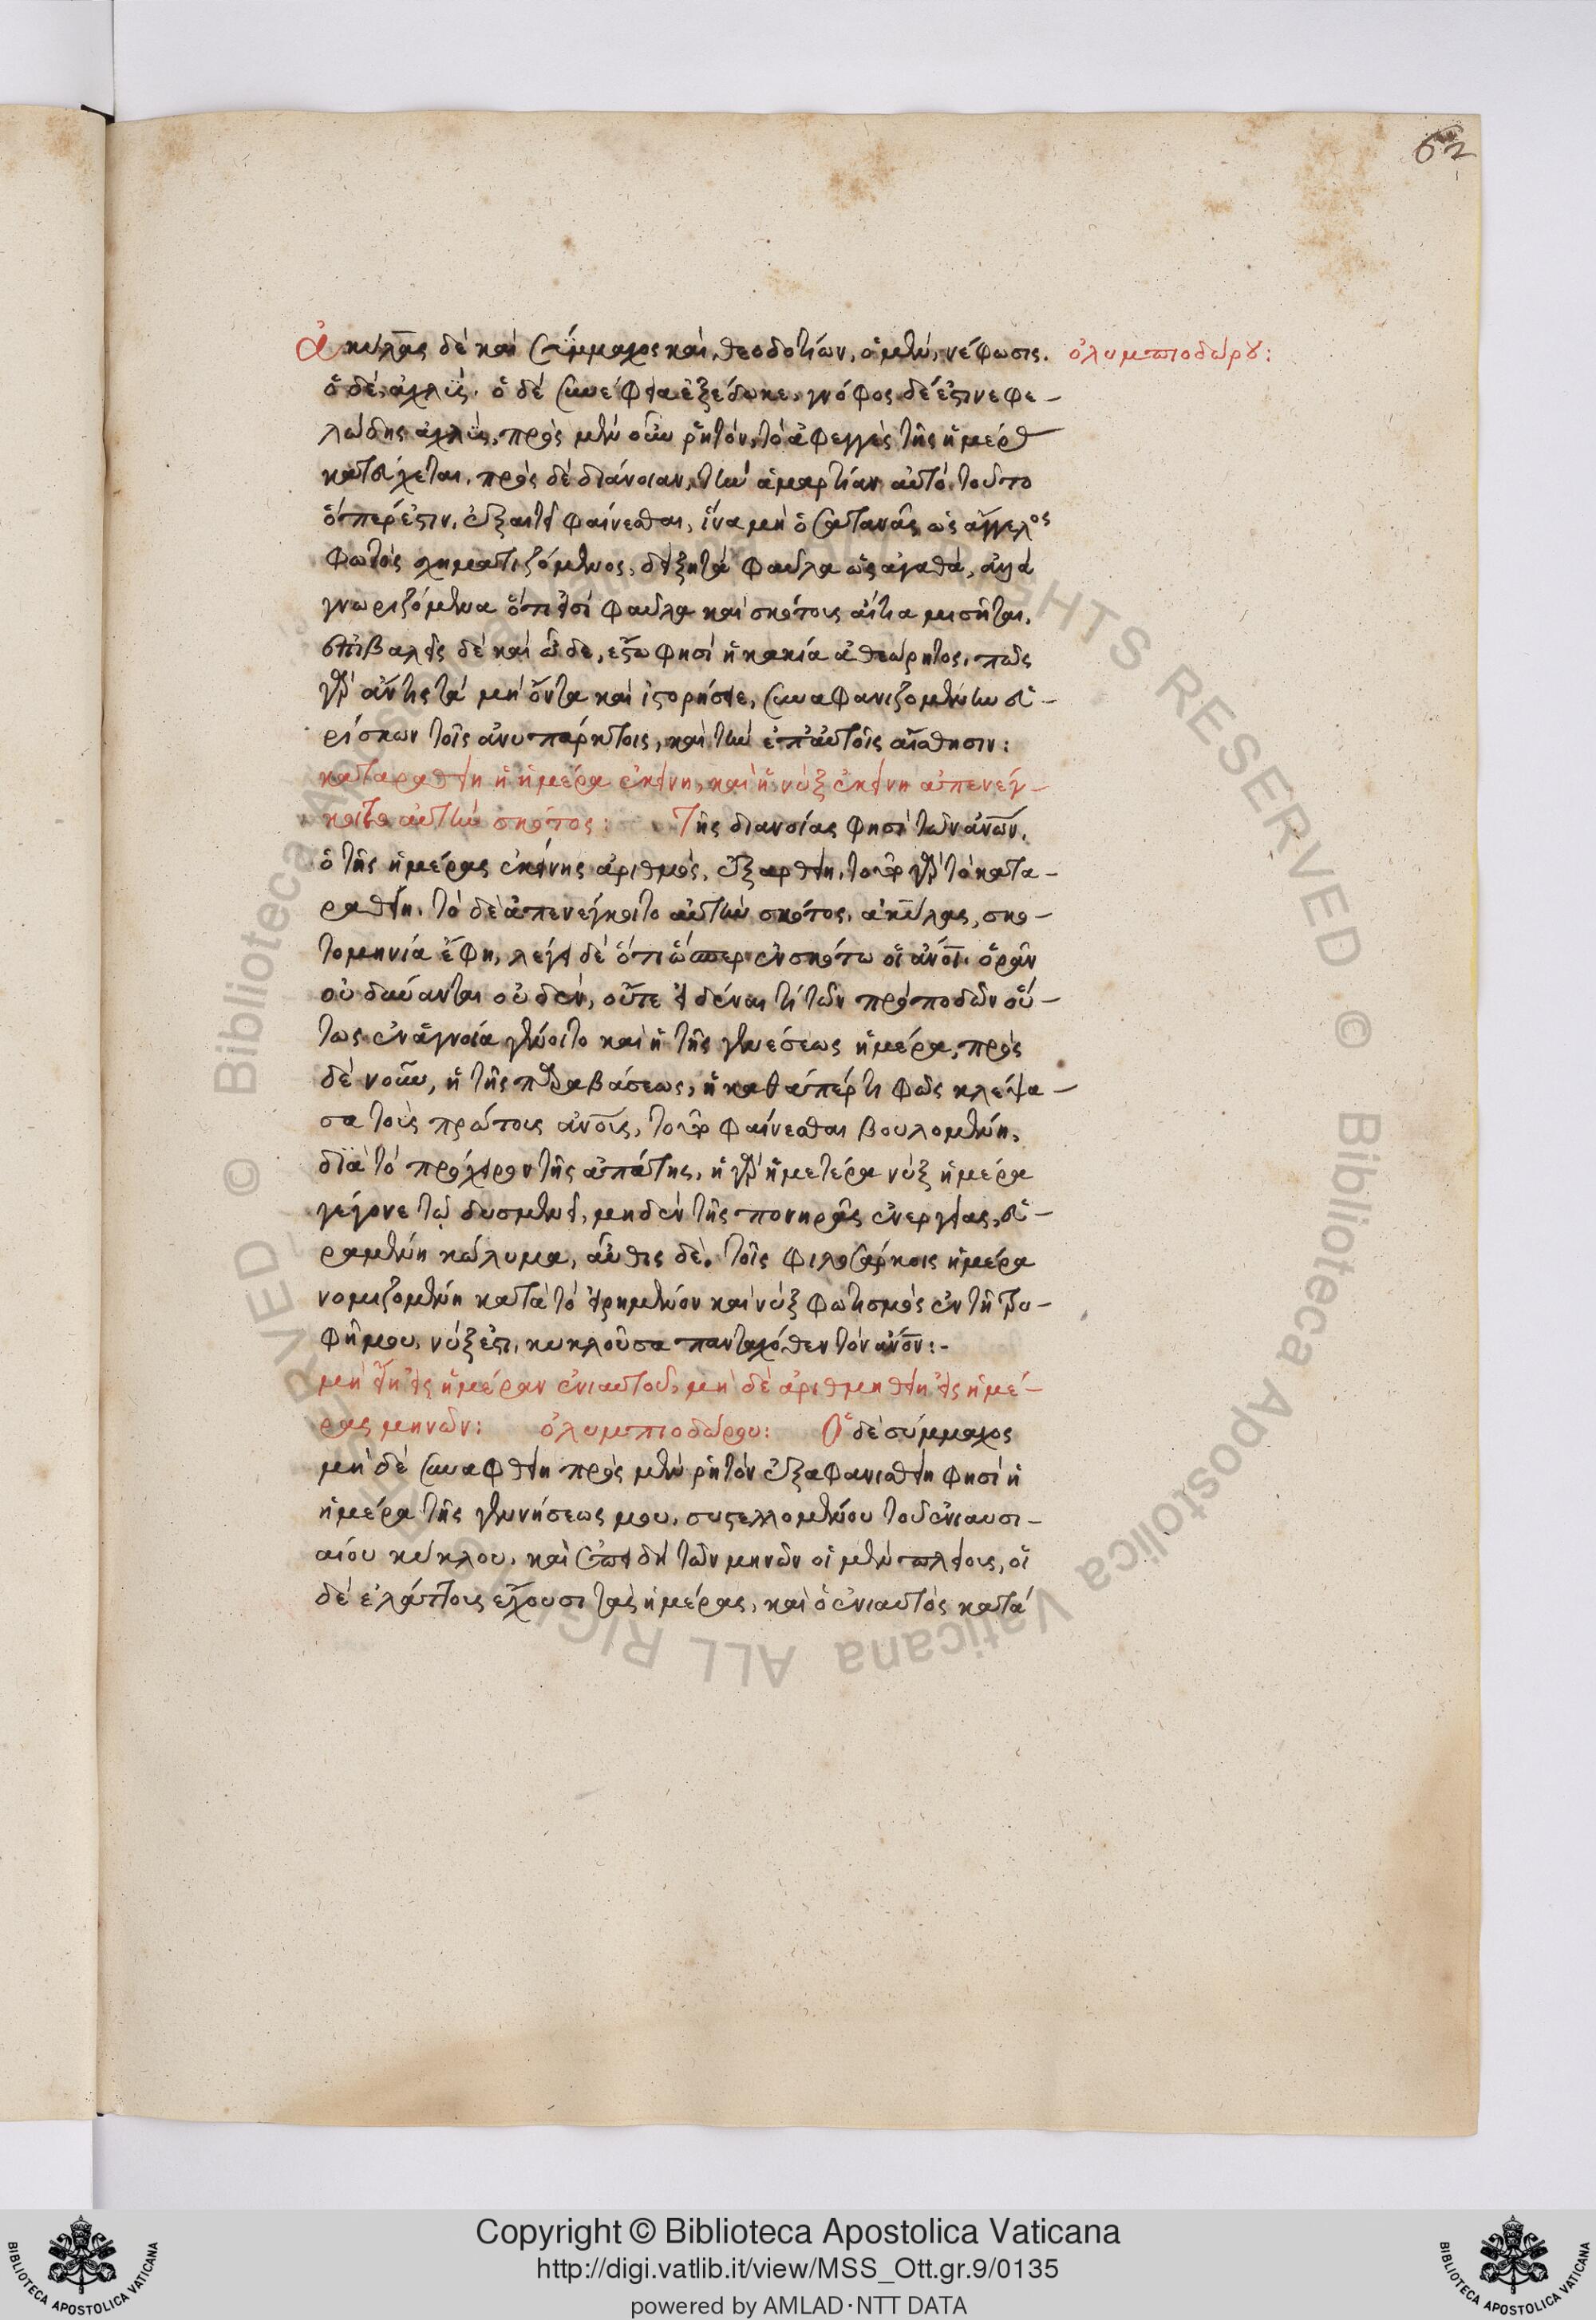 62
ἀκύλας δὲ καὶ σύμμαχος καὶ θεοδοτίων, ὁ μὲν, νέφωσις. ὀλυμπιοδώρου:
ὁ δὲ, ἀχλύς. ὁ δὲ συνείφεια ἐξέδωκε, γνόφος δέ ἐστι νεφε-
λώδης ἀχλύς, πρὸς μὲν οὖν ῥητὸν, τὸ ἀφεγγὲς τῆς ἡμέρας
κατεύχεται. πρὸς δὲ διάνοιαν, τὴν ἁμαρτίαν αὐτὸ τοῦτο
ὅπέρ ἐστιν, ἐξαιτεῖ φαίνεσθαι, ἵνα μὴ ὁ σατανᾶς ὡς ἄγγελος
φωτὸς σχηματιζόμενος, δείξῃ τὰ φαῦλα ὡς ἀγαθά, ἀλλὰ
γνωριζόμενα ὅτι εἰσὶ φαῦλα καὶ σκότους αἴτια μισῆται.
ἐπιβαλεῖς δὲ καὶ ὧδε, ἔξω φησὶ ἡ κακία ἀθεώρητος. πῶς
γὰρ ἄν τις τὰ μὴ ὄντα καὶ ἱστορήσειε, συναφανιζομένην εὑ-
ρίσκων τοῖς ἀνυπάρκτοις, καὶ τὴν ἐπ' αὐτοῖς αἴσθησιν:
καταραθείη ἡ ἡμέρα ἐκείνη, καὶ ἡ νὺξ ἐκείνη ἀπενέγ-
καιτο αὐτὴν σκότος: Τῆς διανοίας φησὶ τῶν ἀνων,
ὁ τῆς ἡμέρας ἐκείνης ἀριθμὸς, ἐξαρθείη. τοῦτο γὰρ τὸ κατα-
ραθείη. τὸ δὲ ἀπενέγκαιτο αὐτὴν σκότος. ἀκύλας, σκο-
τομηνία ἔφη, λέγει δὲ ὅτι ὥσπερ ἐν σκότω οἱ ἀνοι ὁρᾶν
οὐ δύνανται οὐδὲν, οὔτε εἰδέναι τί τῶν πρὸ ποδῶν οὕ-
τως ἐν ἀγνοία γένοιτο καὶ ἡ τῆς γενέσεως ἡμέρα, πρὸς
δὲ νοῦν, ἡ τῆς παραβάσεως, ἡ καθάπέρ τι φῶς κλέψα-
σα τοὺς πρώτους ἀνους, τοῦτο φαίνεσθαι βουλομένη,
διὰ τὸ πρόχειρον τῆς ἀπάτης, ἡ γὰρ ἡμετέρα νὺξ ἡμέρα
γέγονε τῷ δυσμενεῖ, μηδὲν τῆς πονηρᾶς ἐνεργείας, εὑ-
ραμένη κώλυμα, αὖθις δὲ. τοῖς φιλοσάρκοις ἡμέρα
νομιζομένη κατὰ τὸ εἰρημένον καὶ νὺξ φωτισμὸς ἐν τῇ τρυ-
φῇ μου, νύξ ἐστι, κυκλοῦσα πανταχόθεν τὸν ἀνον:-
μὴ εἴη εἰς ἡμέραν ἐνιαυτοῦ, μὴ δὲ ἀριθμηθείη εἰς ἡμέ-
ρας μηνῶν: ὀλυμπιοδώρου: Ὁ δὲ σύμμαχος
μὴ δὲ συναφθείη πρὸς μὲν ῥητὸν ἐξαφανισθείη φησὶ ἡ
ἡμέρα τῆς γεννήσεως μου, συστελλομένου τοῦ ἐνιαυσι-
αίου κύκλου. καὶ ἐπειδὴ τῶν μηνῶν οἱ μὲν πλείους, οἱ
δὲ ἐλάττους ἔχουσι τὰς ἡμέρας, καὶ ὁ ἐνιαυτὸς κατὰ
Copyright © Biblioteca Apostolica Vaticana
http://digi.vatlib.it/view/MSS_Ott.gr.9/0135
powered by AMLAD·NTT DATA